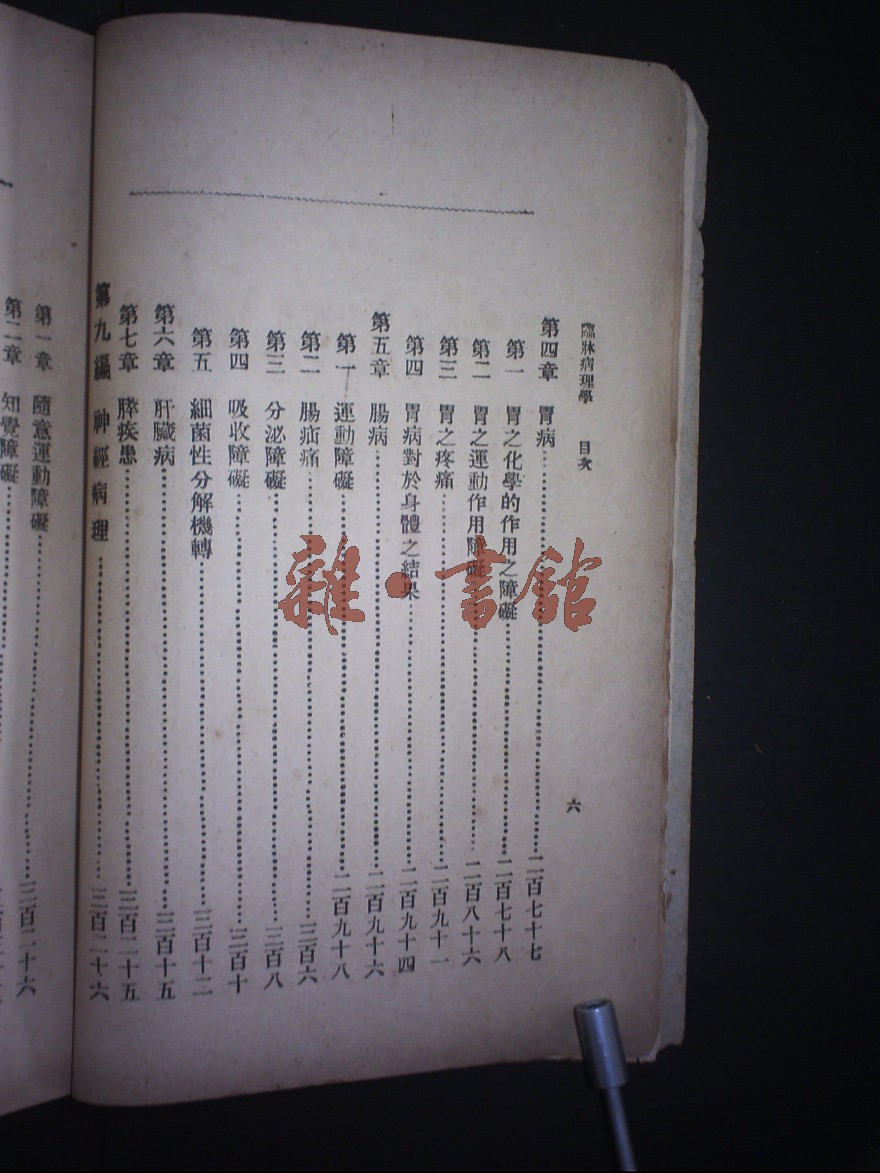 臨牀病理學 目次 六
第四章 胃病 二百七十七
第一 胃之化學的作用之障礙 二百七十八
第二 胃之運動作用障礙 二百八十六
第三 胃之疼痛 二百九十一
第四 胃病對於身體之結果 二百九十四
第五章 腸病 二百九十六
第一 運動障礙 二百九十八
第二 腸疝痛 三百六
第三 分泌障礙 三百八
第四 吸收障礙 三百十
第五 細菌性分解機轉 三百十二
第六章 肝臟病 三百十五
第七章 膵疾患 三百二十五
第九編 神經病理 三百二十六
第一章 隨意運動障礙 三百二十六
第二章 知覺障礙
雜·書館